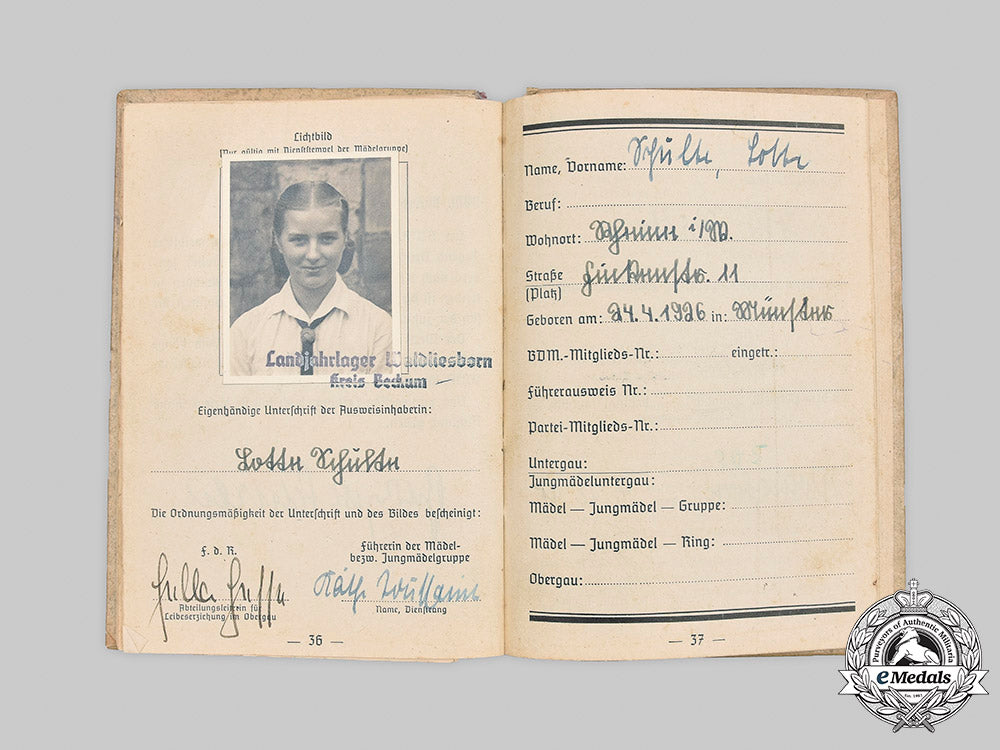 Lichtbild
(Nur gültig mit Dienststempel der Mädelgruppe)
Landjahrlager Waldliesborn
Kreis Beckum —
Eigenhändige Unterschrift der Ausweisinhaberin:
Lotte Schulte
Die Ordnungsmäßigkeit der Unterschrift und des Bildes bescheinigt:
F. d. R.
Führerin der Mädel-
bezw. Jungmädelgruppe
Käthe
Abteilungsleiterin für
Leibeserziehung im Obergau
Name, Dienstrang
— 36 —
Name, Vorname: Schulte, Lotte
Beruf:
Wohnort: i/W.
Straße
(Platz) 11
Geboren am: 24.4.1926 in: Münster
BDM.-Mitglieds-Nr.: eingetr.:
Führerausweis Nr.:
Partei-Mitglieds-Nr.:
Untergau:
Jungmädeluntergau:
Mädel — Jungmädel — Gruppe:
Mädel — Jungmädel — Ring:
Obergau:
— 37 —
Purveyors of Authentic Militaria
eMedals